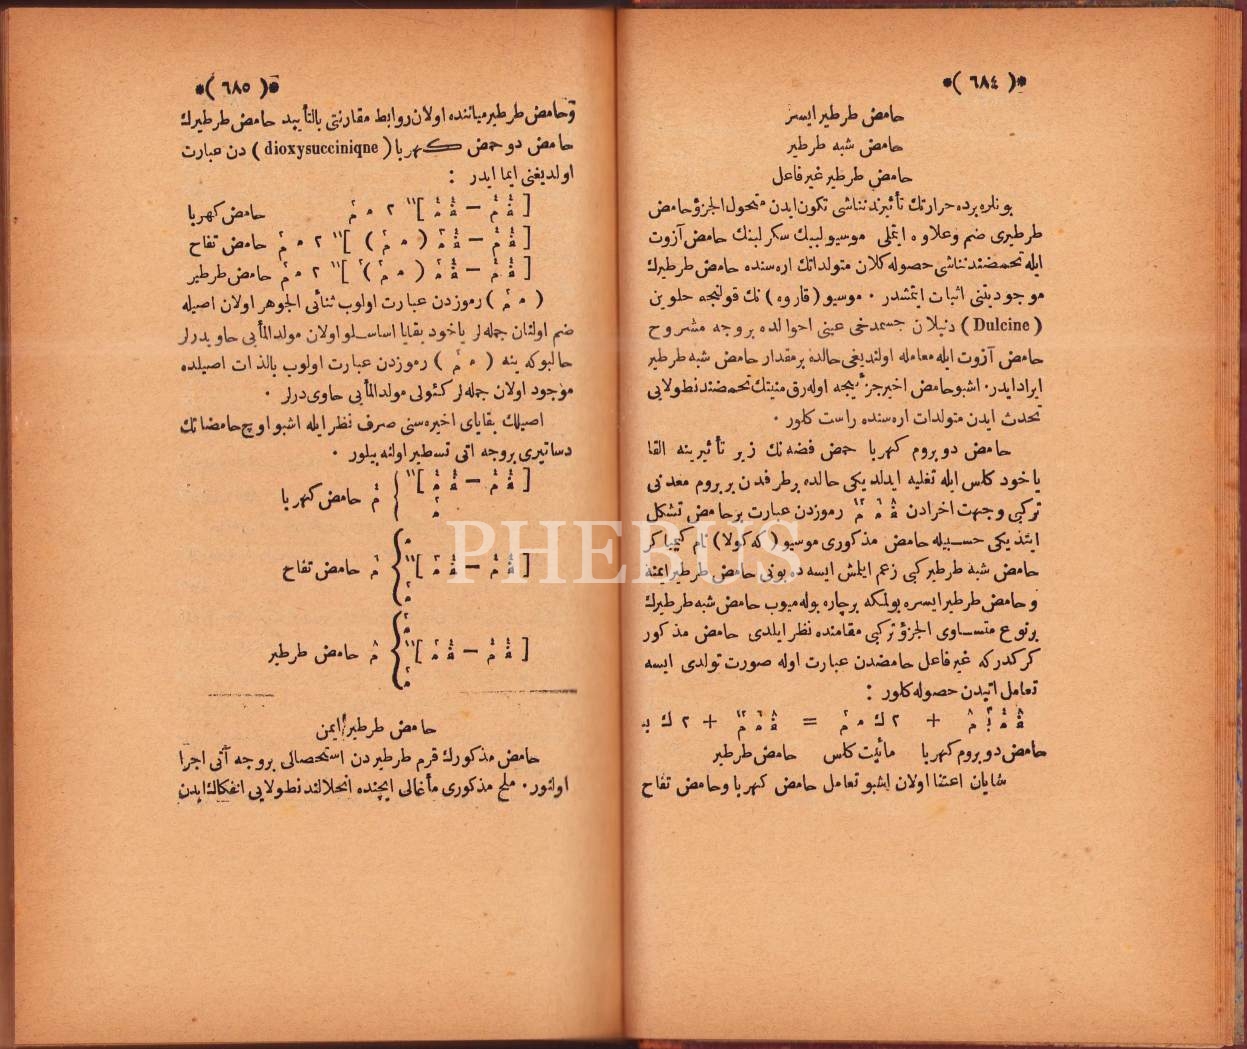 *( ٦٨٤ )*
حامض طرطیر ایسر
حامض شبه طرطیر
حامض طرطیر غیر فاعل
بونلره برده حرارتك تأثیرندنناشی تكون ایدن متحول الجزؤ حامض
طرطیری ضم وعلاوه ایتملی موسیو لیبیك سكر لبنك حامض آزوت
ایله تحمضندنناشی حصوله كلان متولداتك اره سنده حامض طرطیرك
موجودیتنی اثبات ایتمشدر ٠ موسیو ( قاروه ) نك قولنجه حلوین
( Dulcine ) دنیلان جسمدخی عینی احوالده بروجه مشروح
حامض آزوت ایله معامله اولندیغی حالده بر مقدار حامض شبه طرطیر
ایراد ایدر ٠ اشبو حامض اخیر جزئیجه اوله رق منیتك تحمضندنطولایی
تحدث ایدن متولدات اره سنده راست كلور ٠
حامض دوبروم كهربا حمض فضه نك زیر تأثیرینه القا
یاخود كلس ایله تغلیه ایدلدیكی حالده برطرفدن بر بروم معدنی
تركبی وجهت اخرادن رموزدن عبارت بر حامض تشكل
ایتدیكی حسبیله حامض مذكوری موسیو ( كه كولا ) نام كیمیاكر
حامض شبه طرطیر كبی زعم ایلمش ایسه ده بونی حامض طرطیر ایمنه
وحامض طرطیر ایسره بولمكه بر چاره بوله میوب حامض شبه طرطیرك
برنوع متساوی الجزؤ تركبی مقامنده نظر ایلدی حامض مذكور
كركدركه غیر فاعل حامضدن عبارت اوله صورت تولدی ایسه
تعامل اتیدن حصوله كلور :
حامض دوبروم كهربا مائیت كلس حامض طرطیر
شایان اعتنا اولان اشبو تعامل حامض كهربا وحامض تفاح
*( ٦٨٥ )*
وحامض طرطیر میاننده اولان روابط مقارنتی بالتأیید حامض طرطیرك
حامض دوحمض كهربا ( dioxysucciniqne ) دن عبارت
اولدیغنی ایما ایدر :
حامض كهربا
حامض تفاح
حامض طرطیر
رموزدن عبارت اولوب ثنائی الجوهر اولان اصیله
ضم اولنان جمله لر یاخود بقایا اساسلو اولان مولدالمأیی حاویدرلر
حالبوكه ینه رموزدن عبارت اولوب بالذات اصیلده
موجود اولان جمله لر كئولی مولدالمأیی حاوی درلر ٠
اصیلك بقایای اخیره سنی صرف نظر ایله اشبو اوچ حامضاتك
دساتیری بروجه اتی تسطیر اولنه بیلور ٠
حامض كهربا
حامض تفاح
حامض طرطیر
حامض طرطیر ایمن
حامض مذكورك قرم طرطیردن استحصالی بروجه آتی اجرا
اولنور ٠ ملح مذكوری مأغالی ایچنده انحلالندنطولایی انفكاك ایدن
PHEBUS